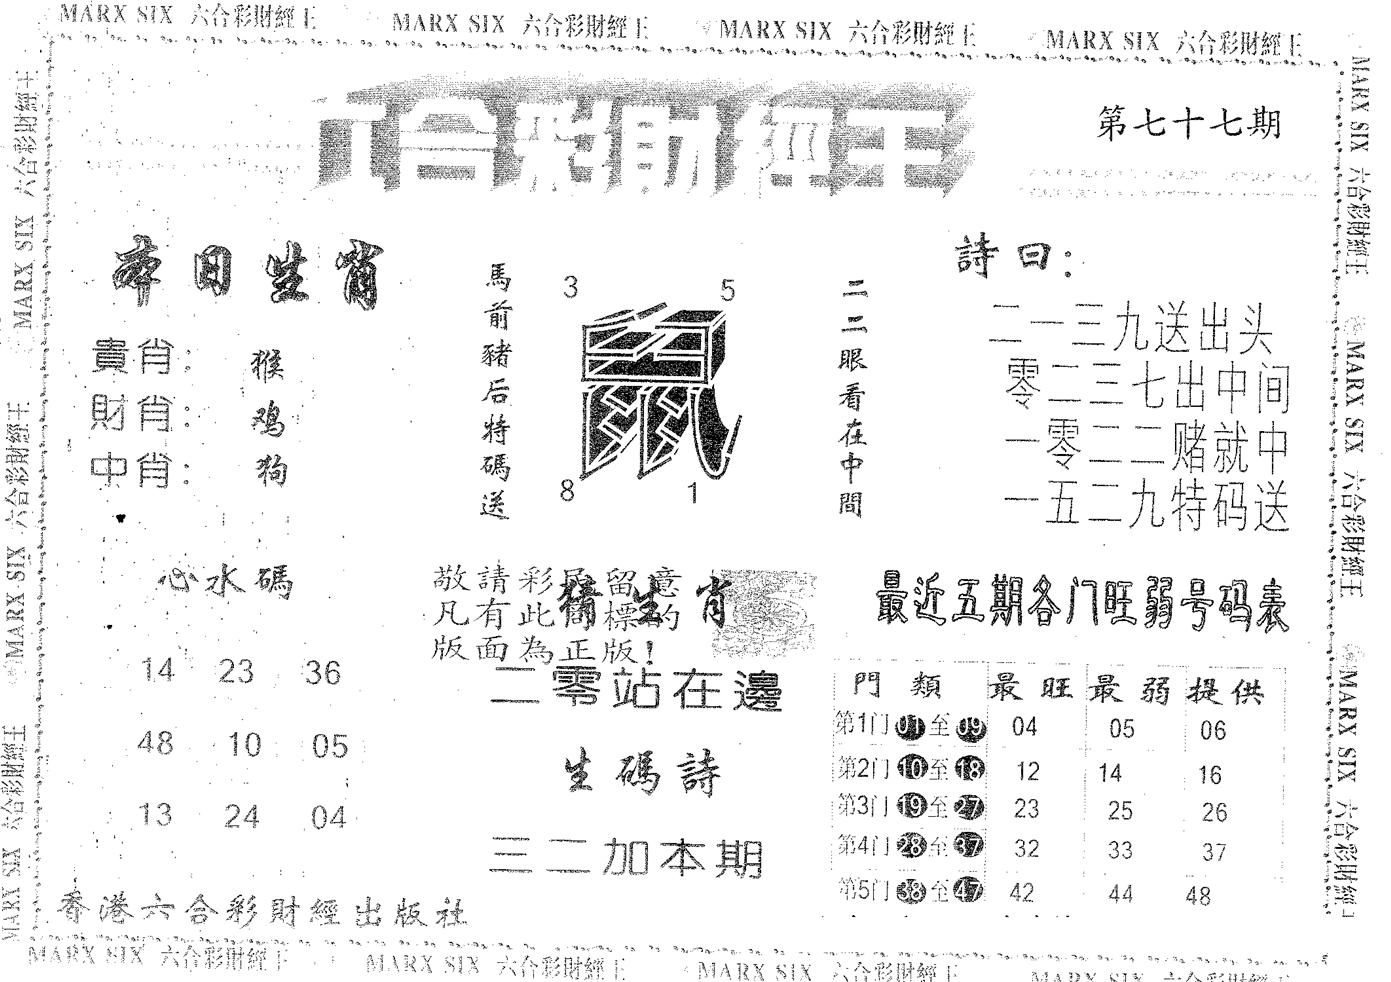 MARX SIX 六合彩財經王 MARX SIX 六合彩財經王 MARX SIX 六合彩財經王 MARX SIX 六合彩財經王
六合彩財經王
第七十七期
本日生肖
貴肖: 猴
財肖: 鸡
中肖: 狗
馬前豬后特碼送
3 5
鼠
8 1
二二眼看在中間
詩曰:
二一三九送出头
零二三七出中间
一零二二赌就中
一五二九特码送
心水碼
14 23 36
48 10 05
13 24 04
敬請彩民留意
凡有此商標的
版面為正版!
猜生肖
二零站在邊
生碼詩
三二加本期
最近五期各门旺弱号码表
門類 最旺 最弱 提供
第1门 01至09 04 05 06
第2门 10至18 12 14 16
第3门 19至27 23 25 26
第4门 28至37 32 33 37
第5门 38至47 42 44 48
香港六合彩財經出版社
MARX SIX 六合彩財經王 MARX SIX 六合彩財經王 MARX SIX 六合彩財經王 MARX SIX 六合彩財經王
MARX SIX 六合彩財經王 MARX SIX 六合彩財經王 MARX SIX 六合彩財經王
MARX SIX 六合彩財經王 MARX SIX 六合彩財經王 MARX SIX 六合彩財經王